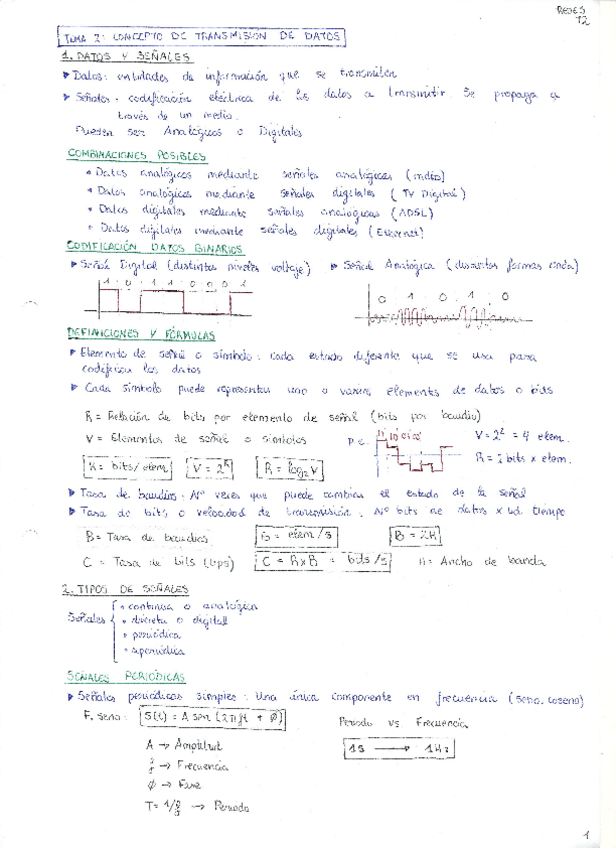 REDES
T2
TEMA 2: CONCEPTO DE TRANSMISION DE DATOS
1. DATOS Y SEÑALES
Datos: entidades de información que se transmiten
Señales: codificación eléctrica de los datos a transmitir. Se propaga a
través de un medio.
Pueden ser Analógicos o Digitales
COMBINACIONES POSIBLES
Datos analógicos mediante señales analógicas (radio)
Datos analógicos mediante señales digitales (TV Digital)
Datos digitales mediante señales analógicas (ADSL)
Datos digitales mediante señales digitales (Ethernet)
CODIFICACIÓN DATOS BINARIOS
Señal Digital (distintos niveles voltaje) Señal Analógica (distintas formas onda)
1 0 1 1 0 0 0 1 0 1 0 1 0
DEFINICIONES Y FÓRMULAS
Elemento de señal o símbolo: cada estado diferente que se usa para
codificar los datos
Cada símbolo puede representar uno o varios elementos de datos o bits
R = Relación de bits por elemento de señal (bits por baudio)
V = Elementos de señal o símbolos p.e. V = 2² = 4 elem.
R = bits/elem V = 2^R R = log₂V R = 2 bits x elem.
Tasa de baudios: Nº veces que puede cambiar el estado de la señal
Tasa de bits o velocidad de transmisión: Nº bits de datos x ud. tiempo
B = Tasa de baudios B = elem/s B = 2H
C = Tasa de bits (bps) C = RxB = bits/s H = Ancho de banda
2. TIPOS DE SEÑALES
Señales
continua o analógica
discreta o digital
periódica
aperiódica
SEÑALES PERIÓDICAS
Señales periódicas simples: Una única componente en frecuencia (seno, coseno)
F. seno: S(t) = A sen (2πft + φ) Periodo vs Frecuencia
A → Amplitud 1S → 1Hz
f → Frecuencia
φ → Fase
T = 1/f → Periodo
1